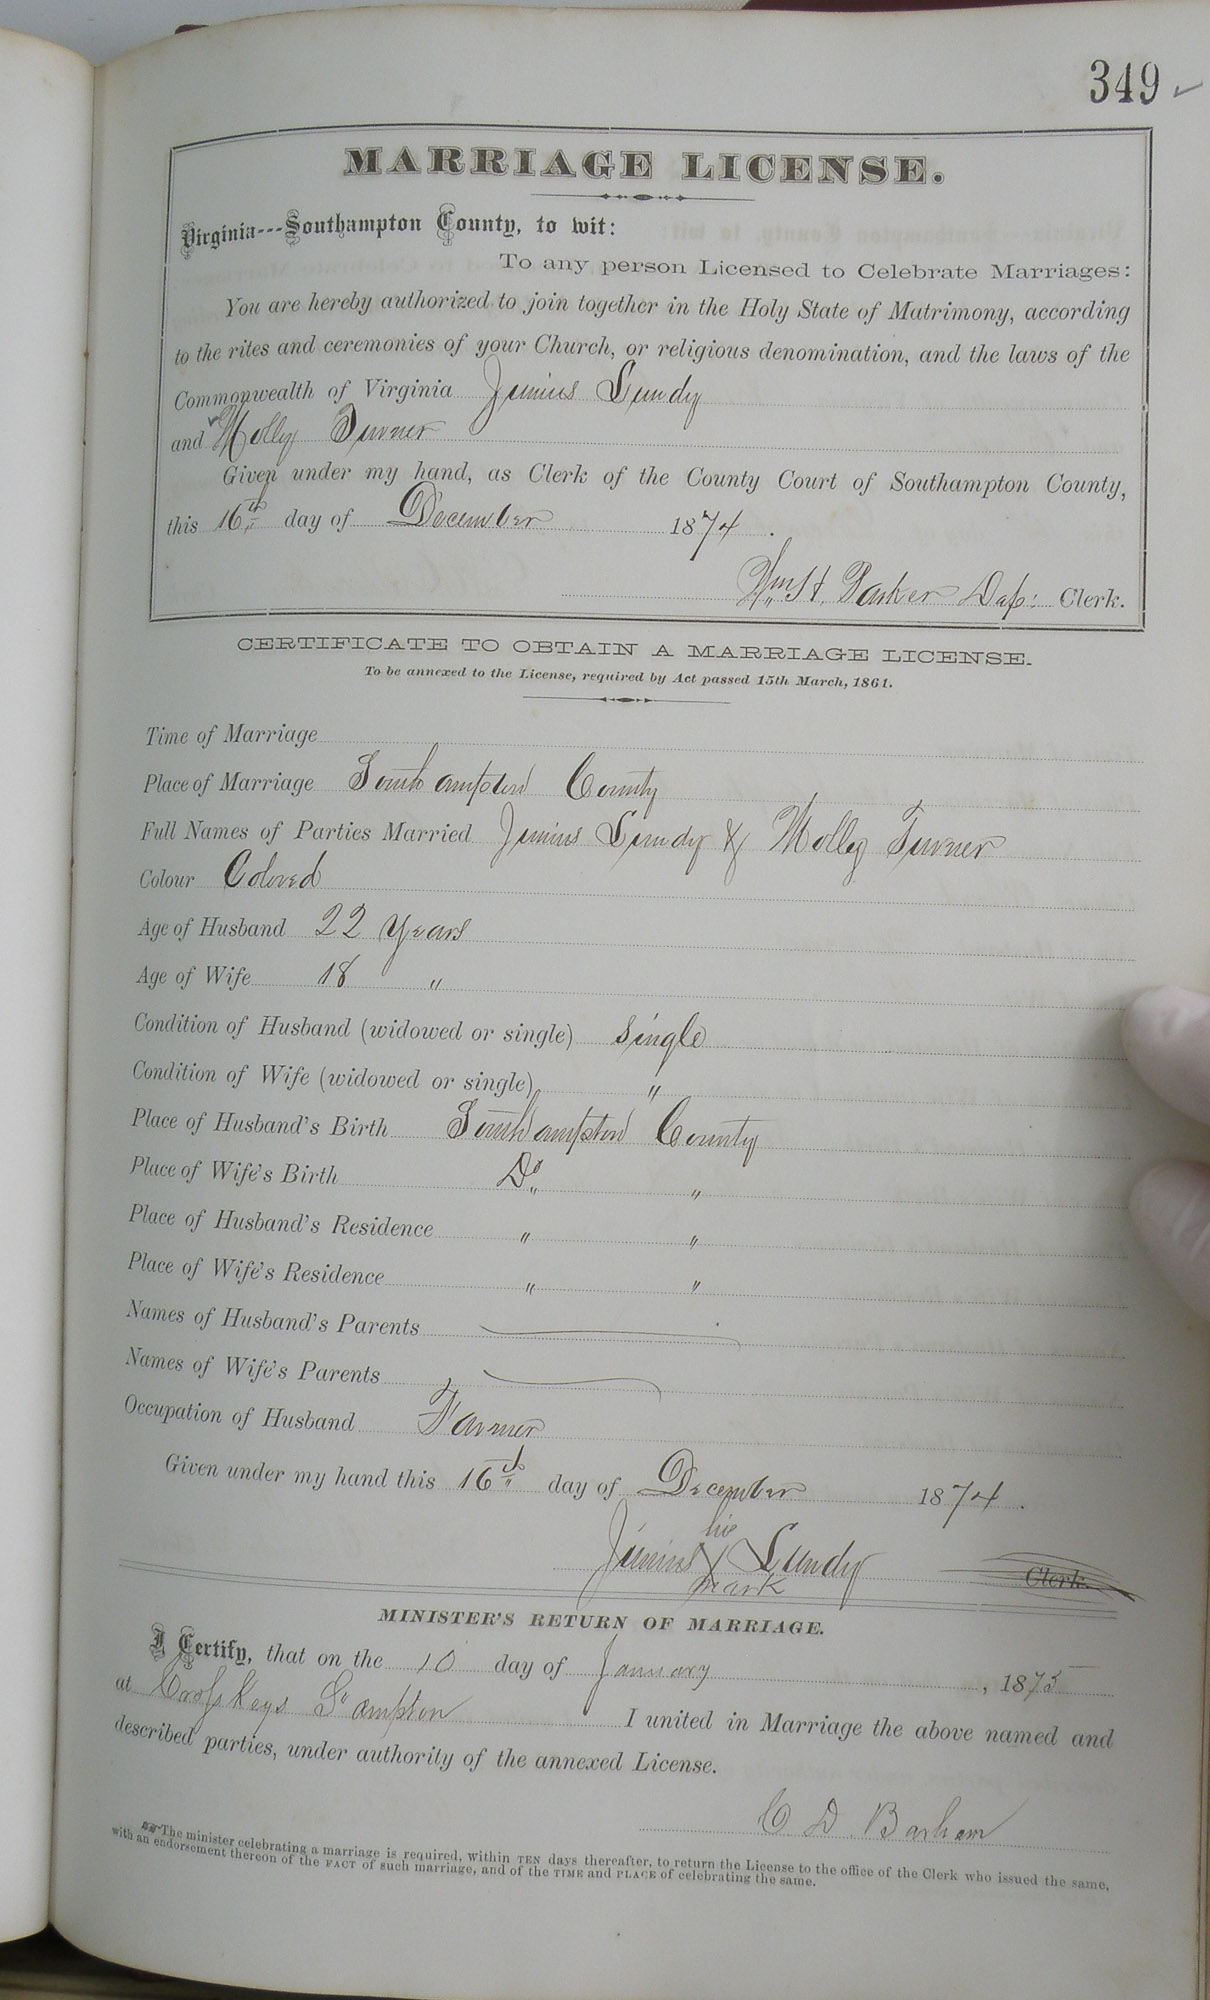 349
MARRIAGE LICENSE.
Virginia---Southampton County, to wit:
To any person Licensed to Celebrate Marriages:
You are hereby authorized to join together in the Holy State of Matrimony, according
to the rites and ceremonies of your Church, or religious denomination, and the laws of the
Commonwealth of Virginia Junius Lundy
and Molly Turner
Given under my hand, as Clerk of the County Court of Southampton County,
this 16th day of December 1874.
Wm H. Parker Dep: Clerk.
CERTIFICATE TO OBTAIN A MARRIAGE LICENSE.
To be annexed to the License, required by Act passed 15th March, 1861.
Time of Marriage
Place of Marriage Southampton County
Full Names of Parties Married Junius Lundy & Molly Turner
Colour Colored
Age of Husband 22 Years
Age of Wife 18 "
Condition of Husband (widowed or single) Single
Condition of Wife (widowed or single) "
Place of Husband's Birth Southampton County
Place of Wife's Birth Do "
Place of Husband's Residence " "
Place of Wife's Residence " "
Names of Husband's Parents
Names of Wife's Parents
Occupation of Husband Farmer
Given under my hand this 16th day of December 1874.
his
Junius X Lundy Clerk.
mark
MINISTER'S RETURN OF MARRIAGE.
I Certify, that on the 10 day of January, 1875
at Cross Keys So ampton I united in Marriage the above named and
described parties, under authority of the annexed License.
C D. Barham
The minister celebrating a marriage is required, within TEN days thereafter, to return the License to the office of the Clerk who issued the same,
with an endorsement thereon of the FACT of such marriage, and of the TIME and PLACE of celebrating the same.